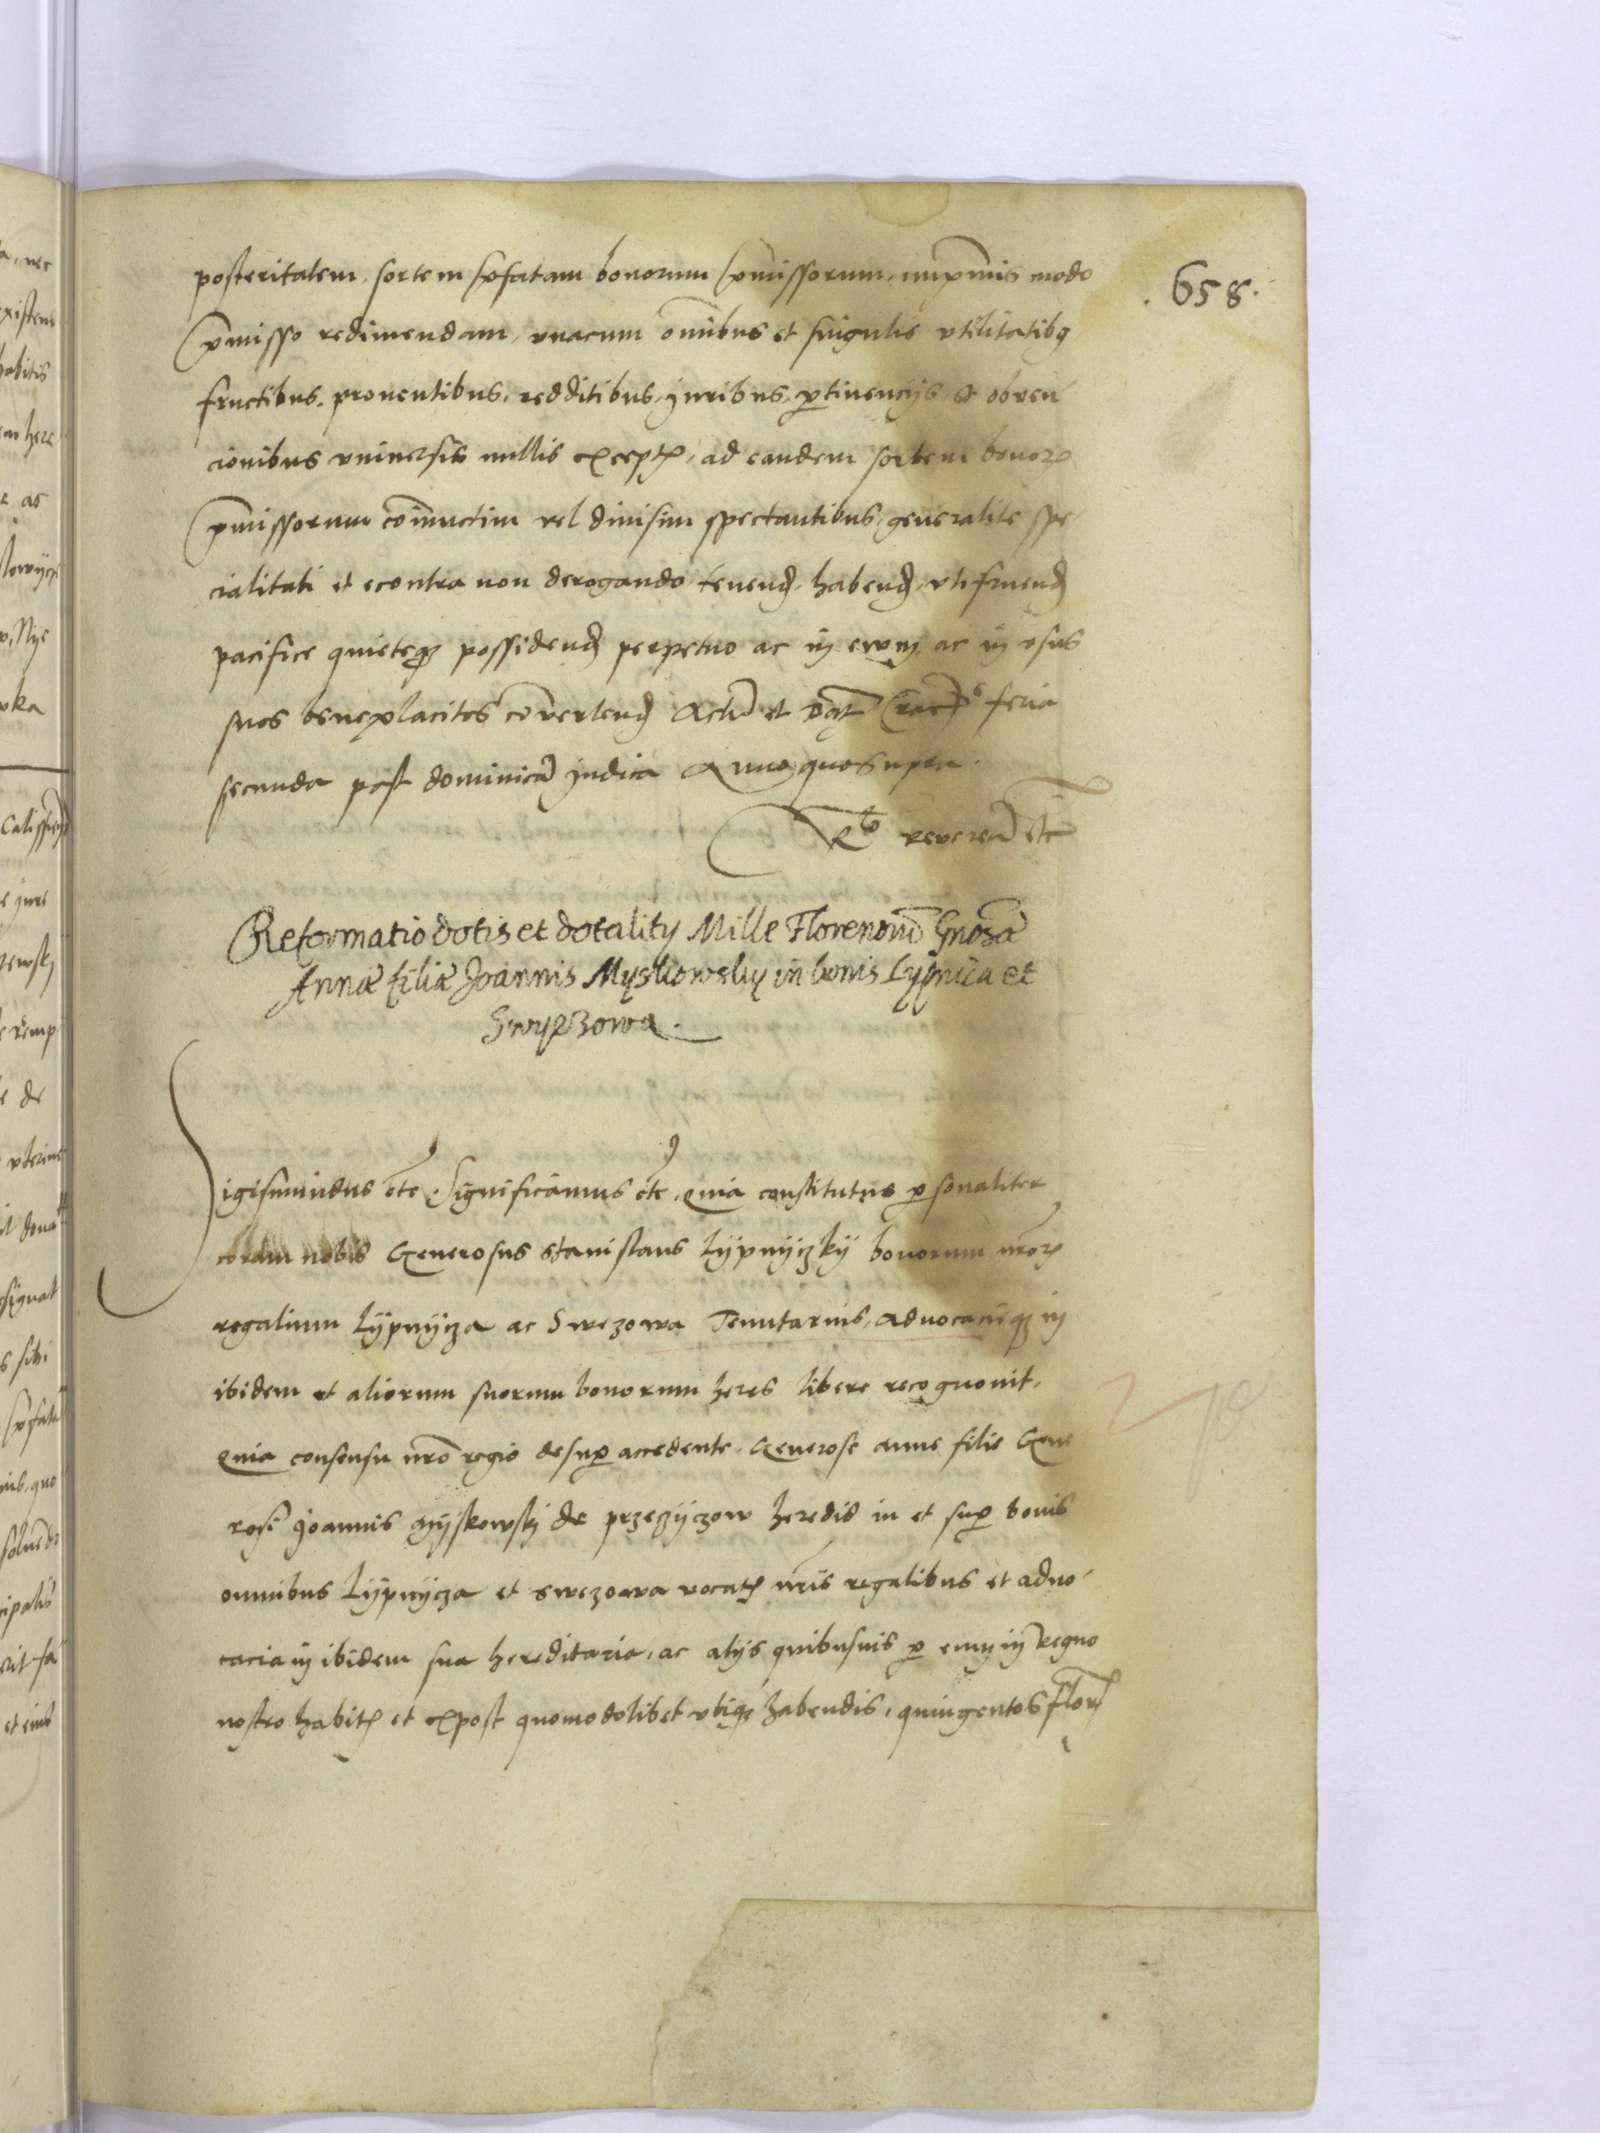 .658.
posteritatem, sortem pfatam bonorum pmissorum, impmis modo
pmisso redimendam, vnacum omibus et singulis vtilitatibq
fructibus, prouentibus, redditibus, yuribus, ptinencijs et obuen
cionibus vniuersis nullis except, ad eandem sortem bonor
pmissorum coniunctim vel diuisim spectantibus, generalite spe
cialitati et econtra non derogando tenend, habend, vtifruend
pacifice quieteq possidend perpetuo ac in ewm, ac in vsus
suos beneplacitos conuertend Actu et Dat Crac feria
secunda post dominica Judica Anno quo supra.
Rto reueren etc
Reformatio dotis et dotality Mille Florenorū Gnosæ
Annæ filiæ Joannis Myskowsky in bonis Lypnica et
Swyezowa.
Sigismundus etc. Significamus etc, quia constitutus psonaliter
coram nobis Generosus Stanislaus Lÿpnÿczkÿ bonorum nror
regalium Lÿpnÿcza ac Swezowa Tenutarius, aduocacieq in
ibidem et aliorum suorum bonorum heres libere recognouit,
Quia consensu nro regio desup accedente, Generose anne filie Gene
rosi Joannis Mÿskowskj de przeczÿczow heredis in et sup bonis
omnibus Lÿpnÿcza et Swezowa vocat nris regalibus et aduo
cacia in ibidem sua hereditaria, ac alijs quibusuis p eum in Regno
nostro habit et expost quomodolibet vbiq habendis, quingentos flor